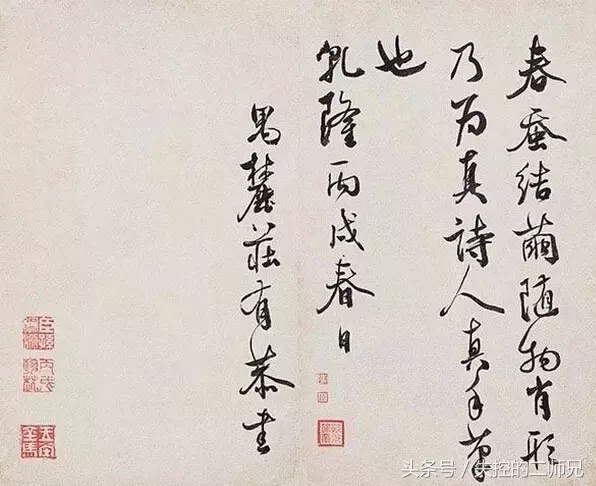 春蚕结茧随物肖形
乃为真詩人真手笔
也
乾隆丙戌春日
畧麓莊有恭書
头条号/失控的二师兄